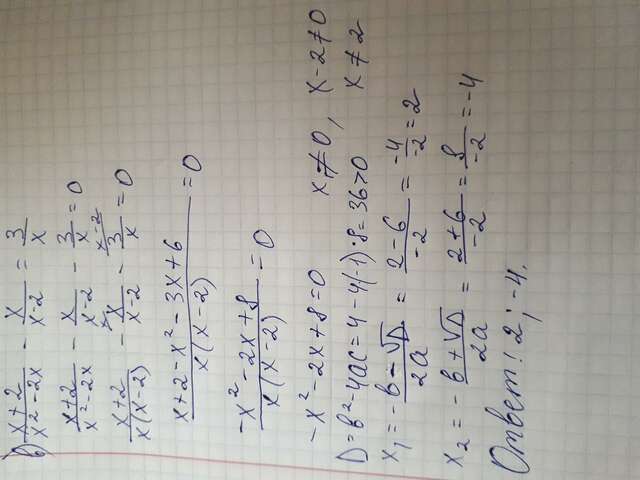 в) x+2/x²-2x - x/x-2 = 3/x
x+2/x²-2x - x/x-2 - 3/x = 0
x+2/x(x-2) - ˣx/x-2 - ˣ⁻²3/x = 0
x+2-x²-3x+6/x(x-2) = 0
-x²-2x+8/x(x-2) = 0
-x²-2x+8=0 x≠0, x-2≠0
D=b²-4ac=4-4(-1)·8=36>0 x≠2
x₁=-b-√D/2a = 2-6/-2 = -4/-2 = 2
x₂=-b+√D/2a = 2+6/-2 = 8/-2 = -4
Ответ: 2; -4.